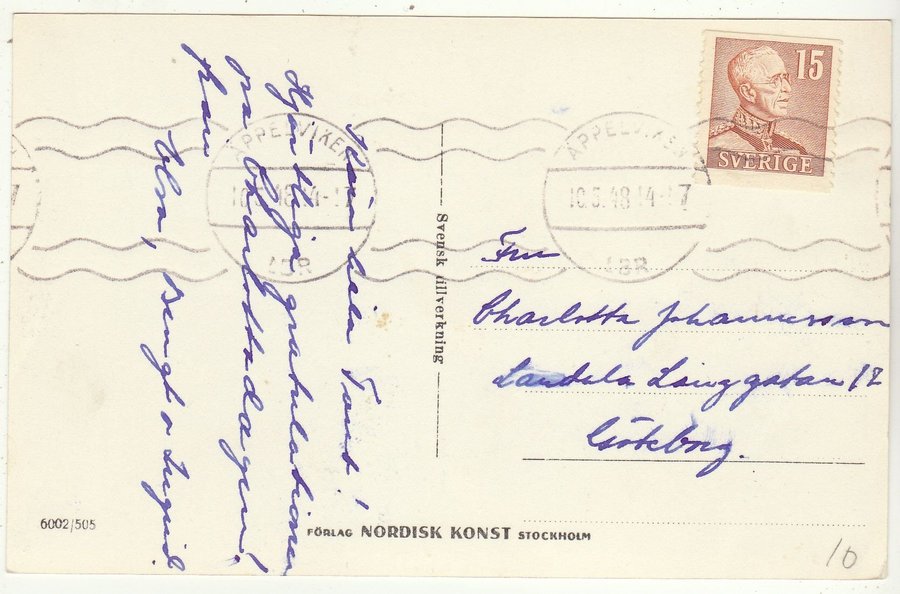 Kära lilla Tant!
Hjärtliga gratulationer
på Charlottadagen!
från
Elsa, Bengt o Ingrid.
Svensk tillverkning
15
SVERIGE
ÄPPELVIKEN
10.5.48 14-17
LBR
ÄPPELVIKEN
10.5.48 14-17
LBR
Fru
Charlotta Johannesson
Landala Långgatan 12
Göteborg.
6002/505
FÖRLAG NORDISK KONST STOCKHOLM
10